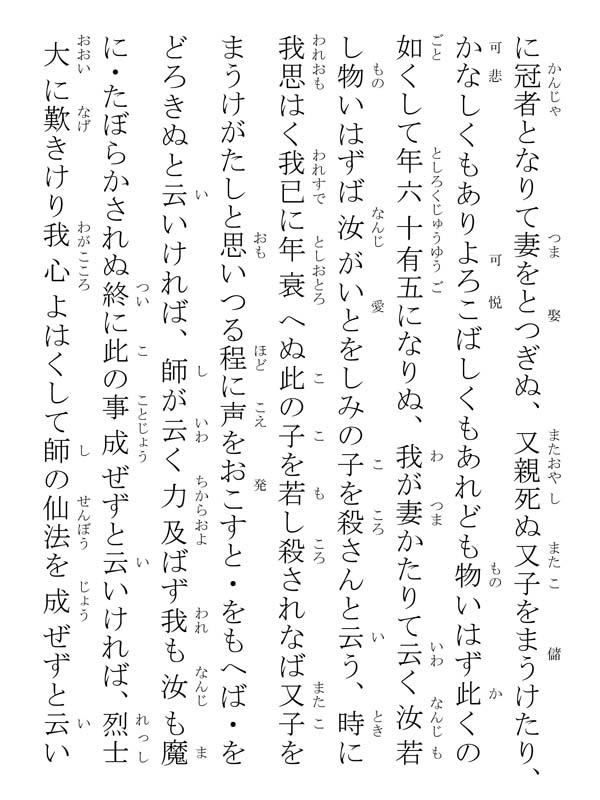 に冠者となりて妻をとつぎぬ、又親死ぬ又子をまうけたり、
かなしくもありよろこばしくもあれども物いはず此くの
如くして年六十有五になりぬ、我が妻かたりて云く汝若
し物いはずば汝がいとをしみの子を殺さんと云う、時に
我思はく我已に年衰へぬ此の子を若し殺されなば又子を
まうけがたしと思いつる程に声をおこすと・をもへば・を
どろきぬと云いければ、師が云く力及ばず我も汝も魔
に・たぼらかされぬ終に此の事成ぜずと云いければ、烈士
大に歎きけり我心よはくして師の仙法を成ぜずと云い